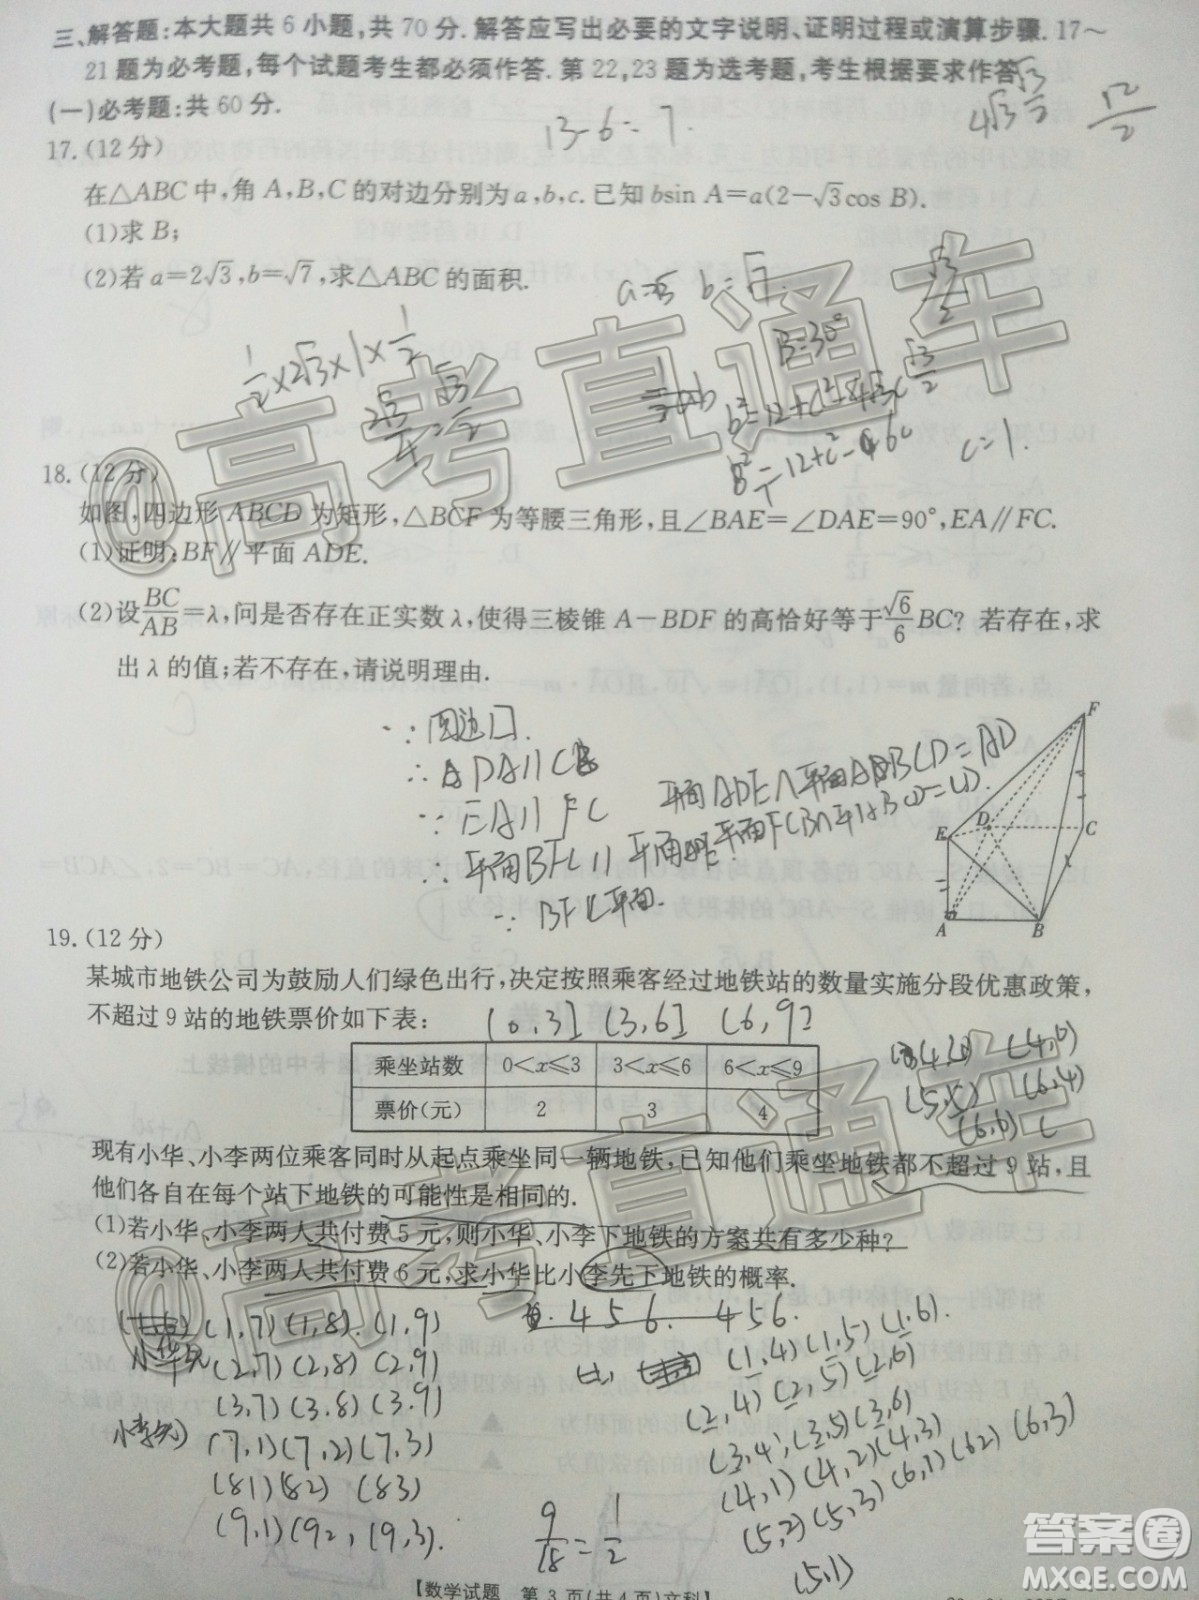 三、解答题:本大题共6小题,共70分.解答应写出必要的文字说明、证明过程或演算步骤.17～
21题为必考题,每个试题考生都必须作答.第22,23题为选考题,考生根据要求作答.
(一)必考题:共60分.
13-6=7.
17.(12分)
在△ABC中,角A,B,C的对边分别为a,b,c.已知bsin A=a(2-√3cos B).
(1)求B;
(2)若a=2√3,b=√7,求△ABC的面积.
B=30°
c=1.
18.(12分)
如图,四边形ABCD为矩形,△BCF为等腰三角形,且∠BAE=∠DAE=90°,EA∥FC.
(1)证明:BF∥平面ADE.
(2)设BC/AB=λ,问是否存在正实数λ,使得三棱锥A-BDF的高恰好等于√6/6 BC?若存在,求
出λ的值;若不存在,请说明理由.
∵EA∥FC
F
E
D
C
A
B
19.(12分)
某城市地铁公司为鼓励人们绿色出行,决定按照乘客经过地铁站的数量实施分段优惠政策,
不超过9站的地铁票价如下表:
(0,3] (3,6] (6,9]
乘坐站数 0<x≤3 3<x≤6 6<x≤9
票价(元) 2 3 4
现有小华、小李两位乘客同时从起点乘坐同一辆地铁,已知他们乘坐地铁都不超过9站,且
他们各自在每个站下地铁的可能性是相同的.
(1)若小华、小李两人共付费5元,则小华、小李下地铁的方案共有多少种?
(2)若小华、小李两人共付费6元,求小华比小李先下地铁的概率.
(1,7)(1,8).(1,9)
456. 456.
小华先 (2,7)(2,8)(2,9)
(1,4)(1,5)(1,6).
(3,7)(3.8)(3.9)
(2,4)(2,5)(2,6)
小李先 (7,1)(7,2)(7,3)
(3,4)(3,5)(3,6)
(81)(82) (83)
(4,1)(4,2)(4,3)
(9,1)(92, (9,3).
(5,2)(5,3)(6,1)(62)(6,3)
9/18=1/2
(5,1)
【数学试题 第3页(共4页)文科】
@高考直通车
@高考直通车
答案圈
MXQE.COM